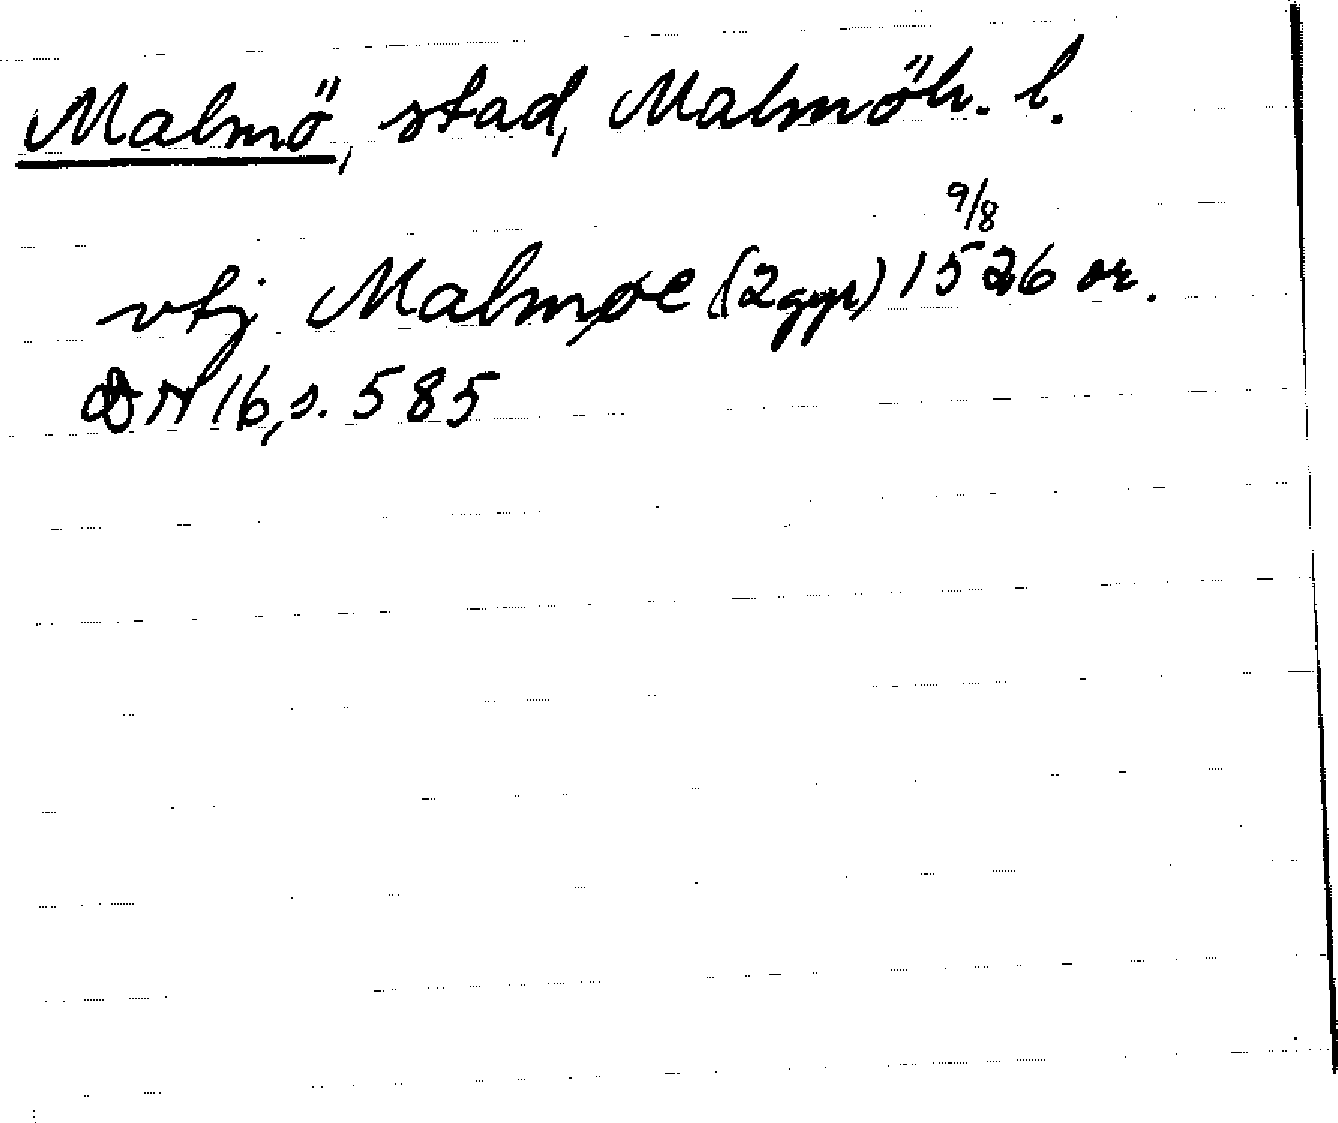 Malmö, stad, Malmöh. l.
vtj Malmøe (2 ggr) 9/8 1526 or.
DN 16, s. 585